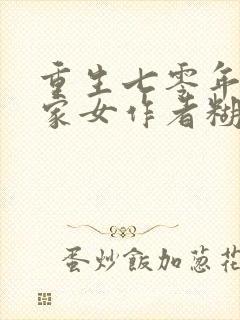 重生七零年
家女作者糊
蛋炒飯加葱花